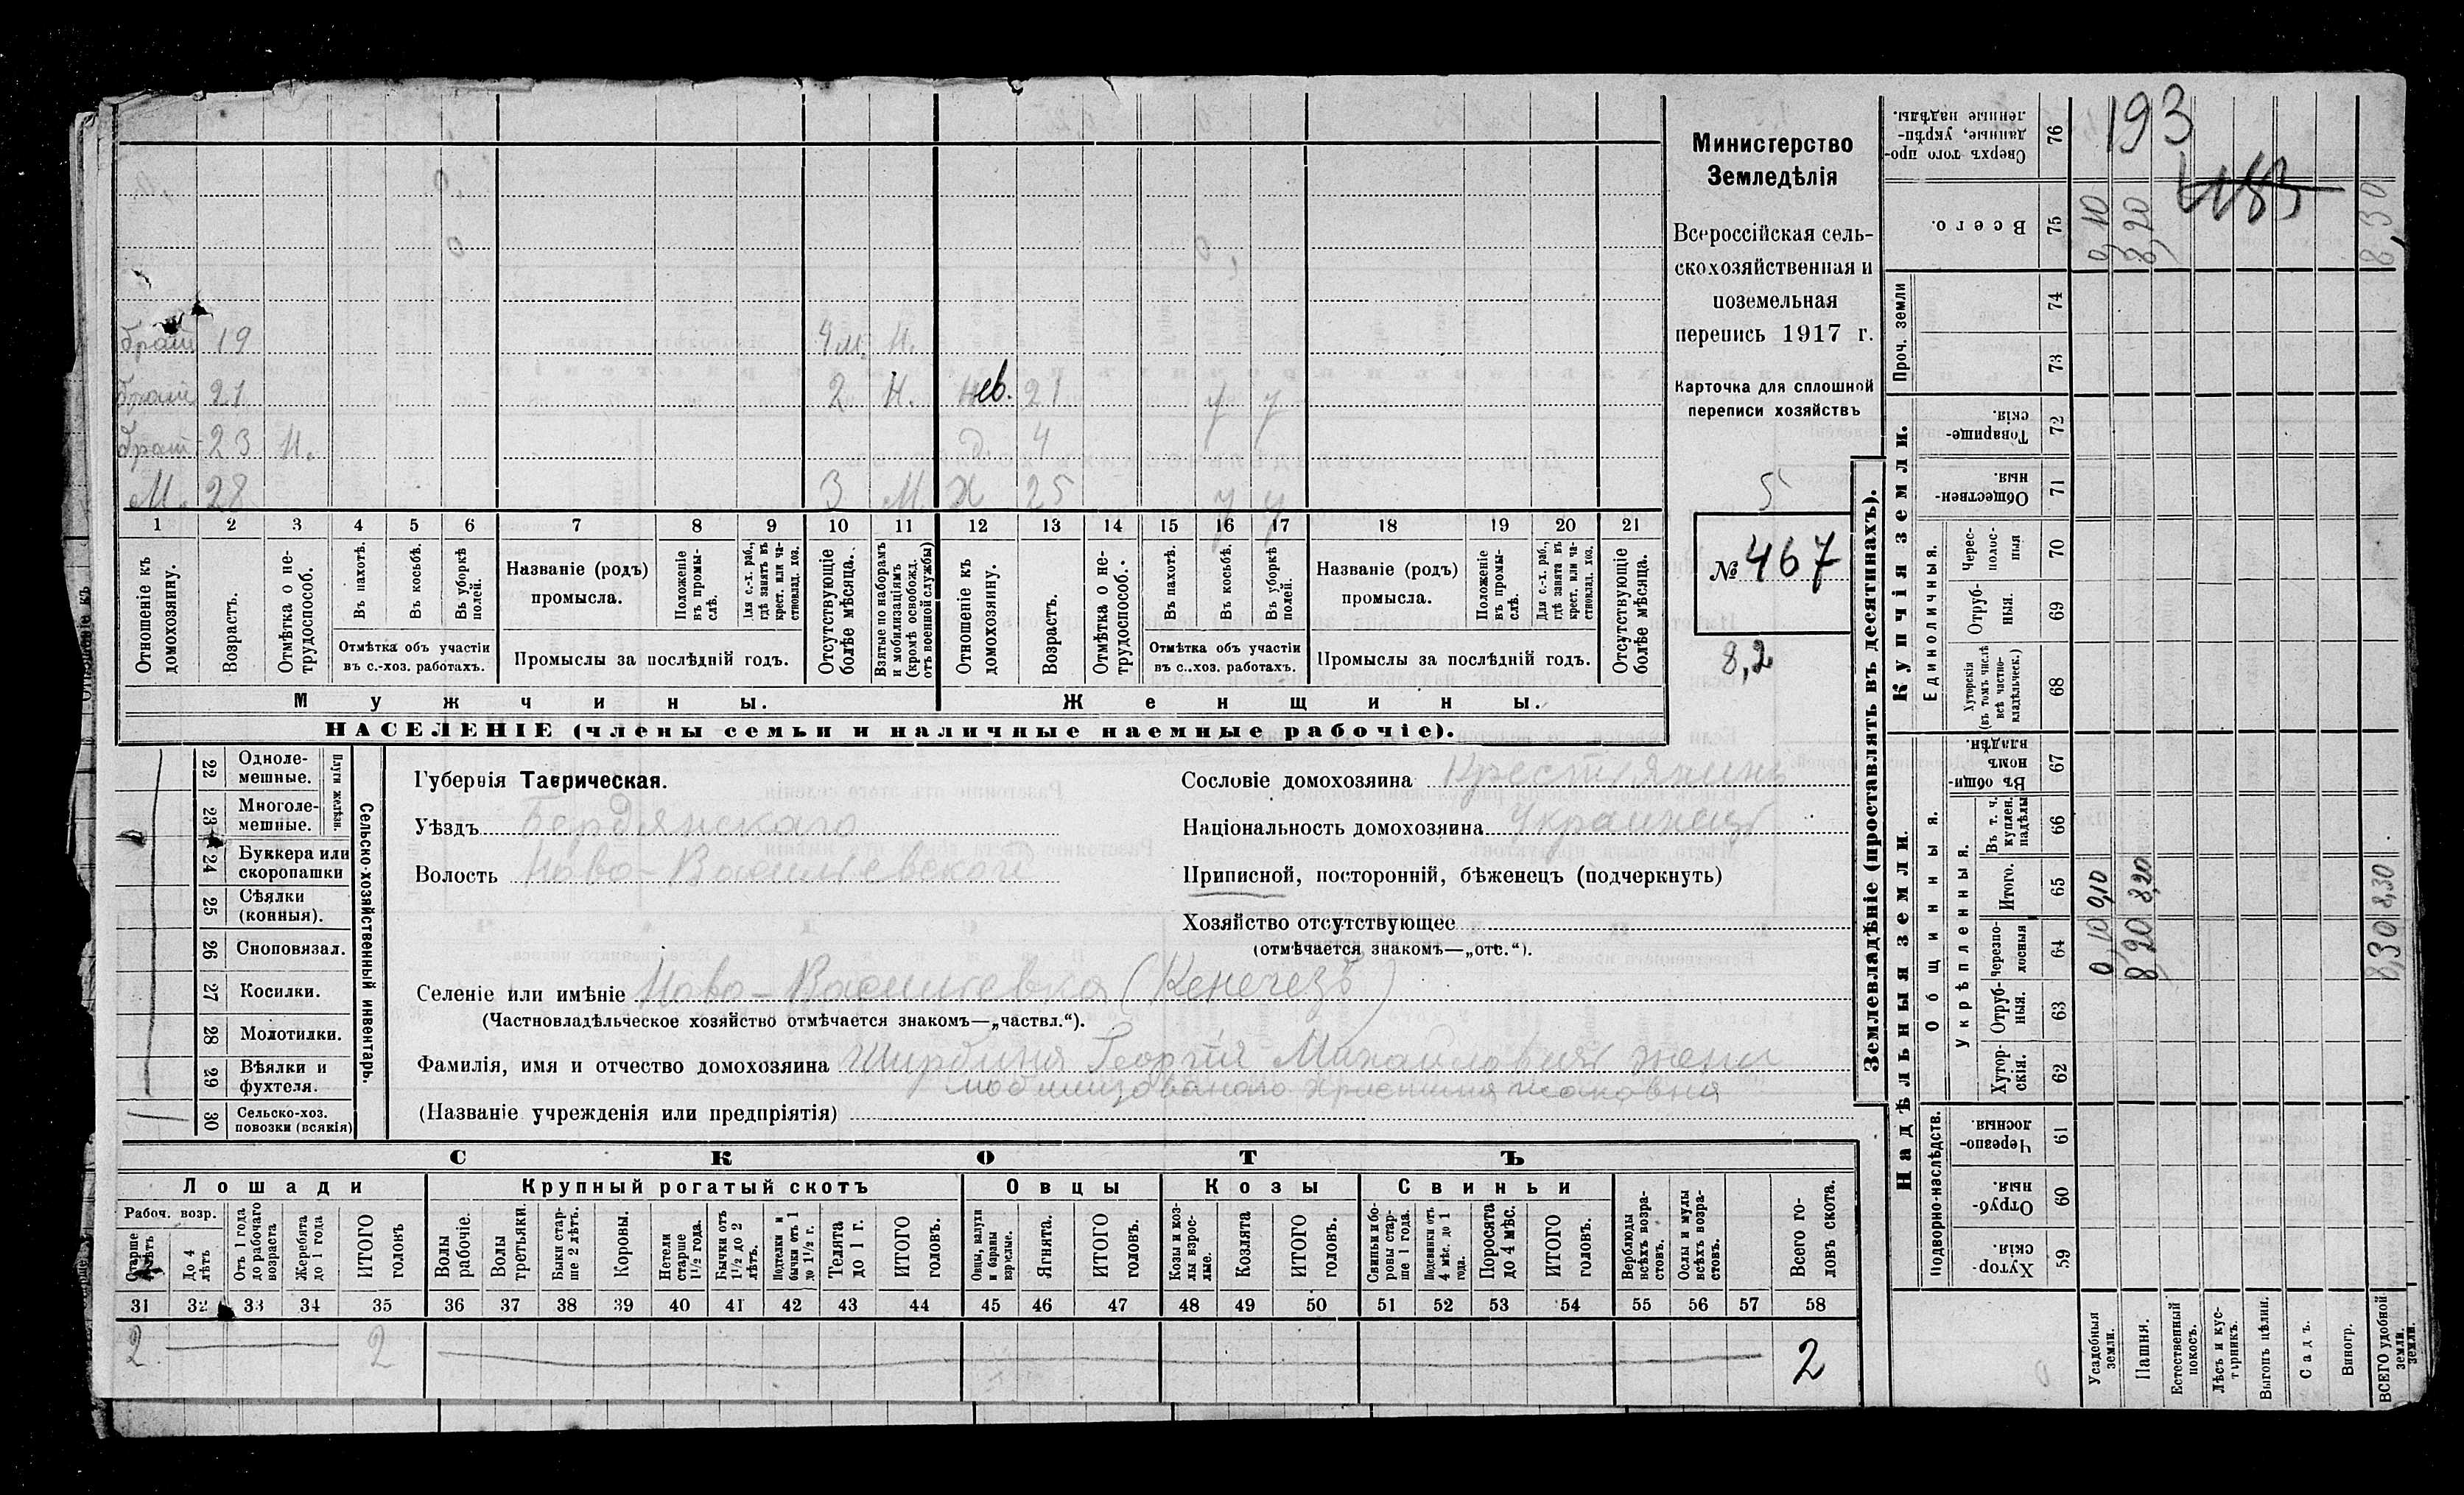 Министерство
Земледѣлія
Всероссійская сель-
скохозяйственная и
поземельная
перепись 1917 г.
Карточка для сплошной
переписи хозяйствъ
5
№ 467
8,2
193
183
брат 19 4 м. Н.
брат 21 2 Н. нев. 21 у у
брат 23 Н. д. 4
М. 28 3 М Х 25 у у
1 2 3 4 5 6 7 8 9 10 11 12 13 14 15 16 17 18 19 20 21
Отношеніе къ домохозяину.
Возрастъ.
Отмѣтка о не-трудоспособ.
Въ пахотѣ.
Въ косьбѣ.
Въ уборкѣ полей.
Отмѣтка объ участіи въ с.-хоз. работахъ.
Названіе (родъ) промысла.
Положеніе въ промы-слѣ.
Для с.-х. раб., гдѣ занятъ въ крест. или ча-стновлад. хоз.
Промыслы за послѣдній годъ.
Отсутствующіе болѣе мѣсяца.
Взятые по наборамъ и мобилизаціямъ (кромѣ освобожд. отъ военной службы)
Отношеніе къ домохозяину.
Возрастъ.
Отмѣтка о не-трудоспособ.
Въ пахотѣ.
Въ косьбѣ.
Въ уборкѣ полей.
Отмѣтка объ участіи въ с.-хоз. работахъ.
Названіе (родъ) промысла.
Положеніе въ промы-слѣ.
Для с.-х. раб., гдѣ занята въ крест. или ча-стновлад. хоз.
Промыслы за послѣдній годъ.
Отсутствующіе болѣе мѣсяца.
Мужчины. Женщины.
НАСЕЛЕНІЕ (члены семьи и наличные наемные рабочіе).
Сельско-хозяйственный инвентарь.
Плуги желѣзн.
22 Одноле-мешные.
23 Многоле-мешные.
24 Буккера или скоропашки
25 Сѣялки (конныя).
26 Сноповязал.
27 Косилки.
28 Молотилки.
29 Вѣялки и фухтеля.
30 Сельско-хоз. повозки (всякія)
Губернія Таврическая.
Уѣздъ Бердянскаго
Волость Ново-Васильевской
Сословіе домохозяина Крестьянинъ
Національность домохозяина Украинецъ
Приписной, посторонній, бѣженецъ (подчеркнуть)
Хозяйство отсутствующее
(отмѣчается знакомъ—„отс.“).
Селеніе или имѣніе Ново-Васильевка (Кенегезъ)
(Частновладѣльческое хозяйство отмѣчается знакомъ—„частвл.“).
Фамилія, имя и отчество домохозяина Георгія Михайловича жена
мобилизованаго
(Названіе учрежденія или предпріятія)
СКОТЪ
Лошади Крупный рогатый скотъ Овцы Козы Свиньи
Рабоч. возр.
Старше 4 лѣтъ
До 4 лѣтъ
Отъ 1 года до рабочаго возраста
Жеребята до 1 года
ИТОГО головъ
Волы рабочіе.
Волы третьяки.
Быки стар-ше 2 лѣтъ.
Коровы.
Нетели старше 1½ года.
Бычки отъ 1½ до 2 лѣтъ.
Подтелки и бычки отъ 1 до 1½ г.
Телята до 1 г.
ИТОГО головъ.
Овцы, валухи и бараны взрослые.
Ягнята.
ИТОГО головъ.
Козы и коз-лы взрос-лые.
Козлята
ИТОГО головъ.
Свиньи и бо-ровы стар-ше 1 года.
Подсвинки отъ 4 мѣс. до 1 года.
Поросята до 4 мѣс.
ИТОГО головъ.
Верблюды всѣхъ возра-стовъ.
Ослы и мулы всѣхъ возра-стовъ.
Всего го-ловъ скота.
31 32 33 34 35 36 37 38 39 40 41 42 43 44 45 46 47 48 49 50 51 52 53 54 55 56 57 58
2 2 2
Землевладѣніе (проставлять въ десятинахъ).
Купчія земли.
Надѣльныя земли.
Сверхъ того про-данные, укрѣп-ленные надѣлы. 76
Всего. 75 0,10 8,20 8,30
Проч. земли 74 73
Товарище-скія. 72
Обществен-ныя. 71
Единоличныя.
Черес-полос-ныя 70
Отруб-ныя. 69
Хуторскія (въ томъ числѣ всѣ частно-владѣльческ.) 68
Общинныя.
Въ общи-номъ владѣн. 67
Укрѣпленныя.
Въ т. ч. куплен. надѣлы 66
Итого. 65 0,10 8,20 8,30
Черезпо-лосныя 64 0,10 8,20 8,30
Отруб-ныя. 63
Хутор-скія. 62
Подворно-наслѣдств.
Черезпо-лосныя. 61
Отруб-ныя. 60
Хутор-скія. 59
Усадебныя земли.
Пашня.
Естественный покосъ.
Лѣсъ и кус-тарникъ.
Выгонъ цѣлин.
Садъ.
Виногр.
ВСЕГО удобной земли.